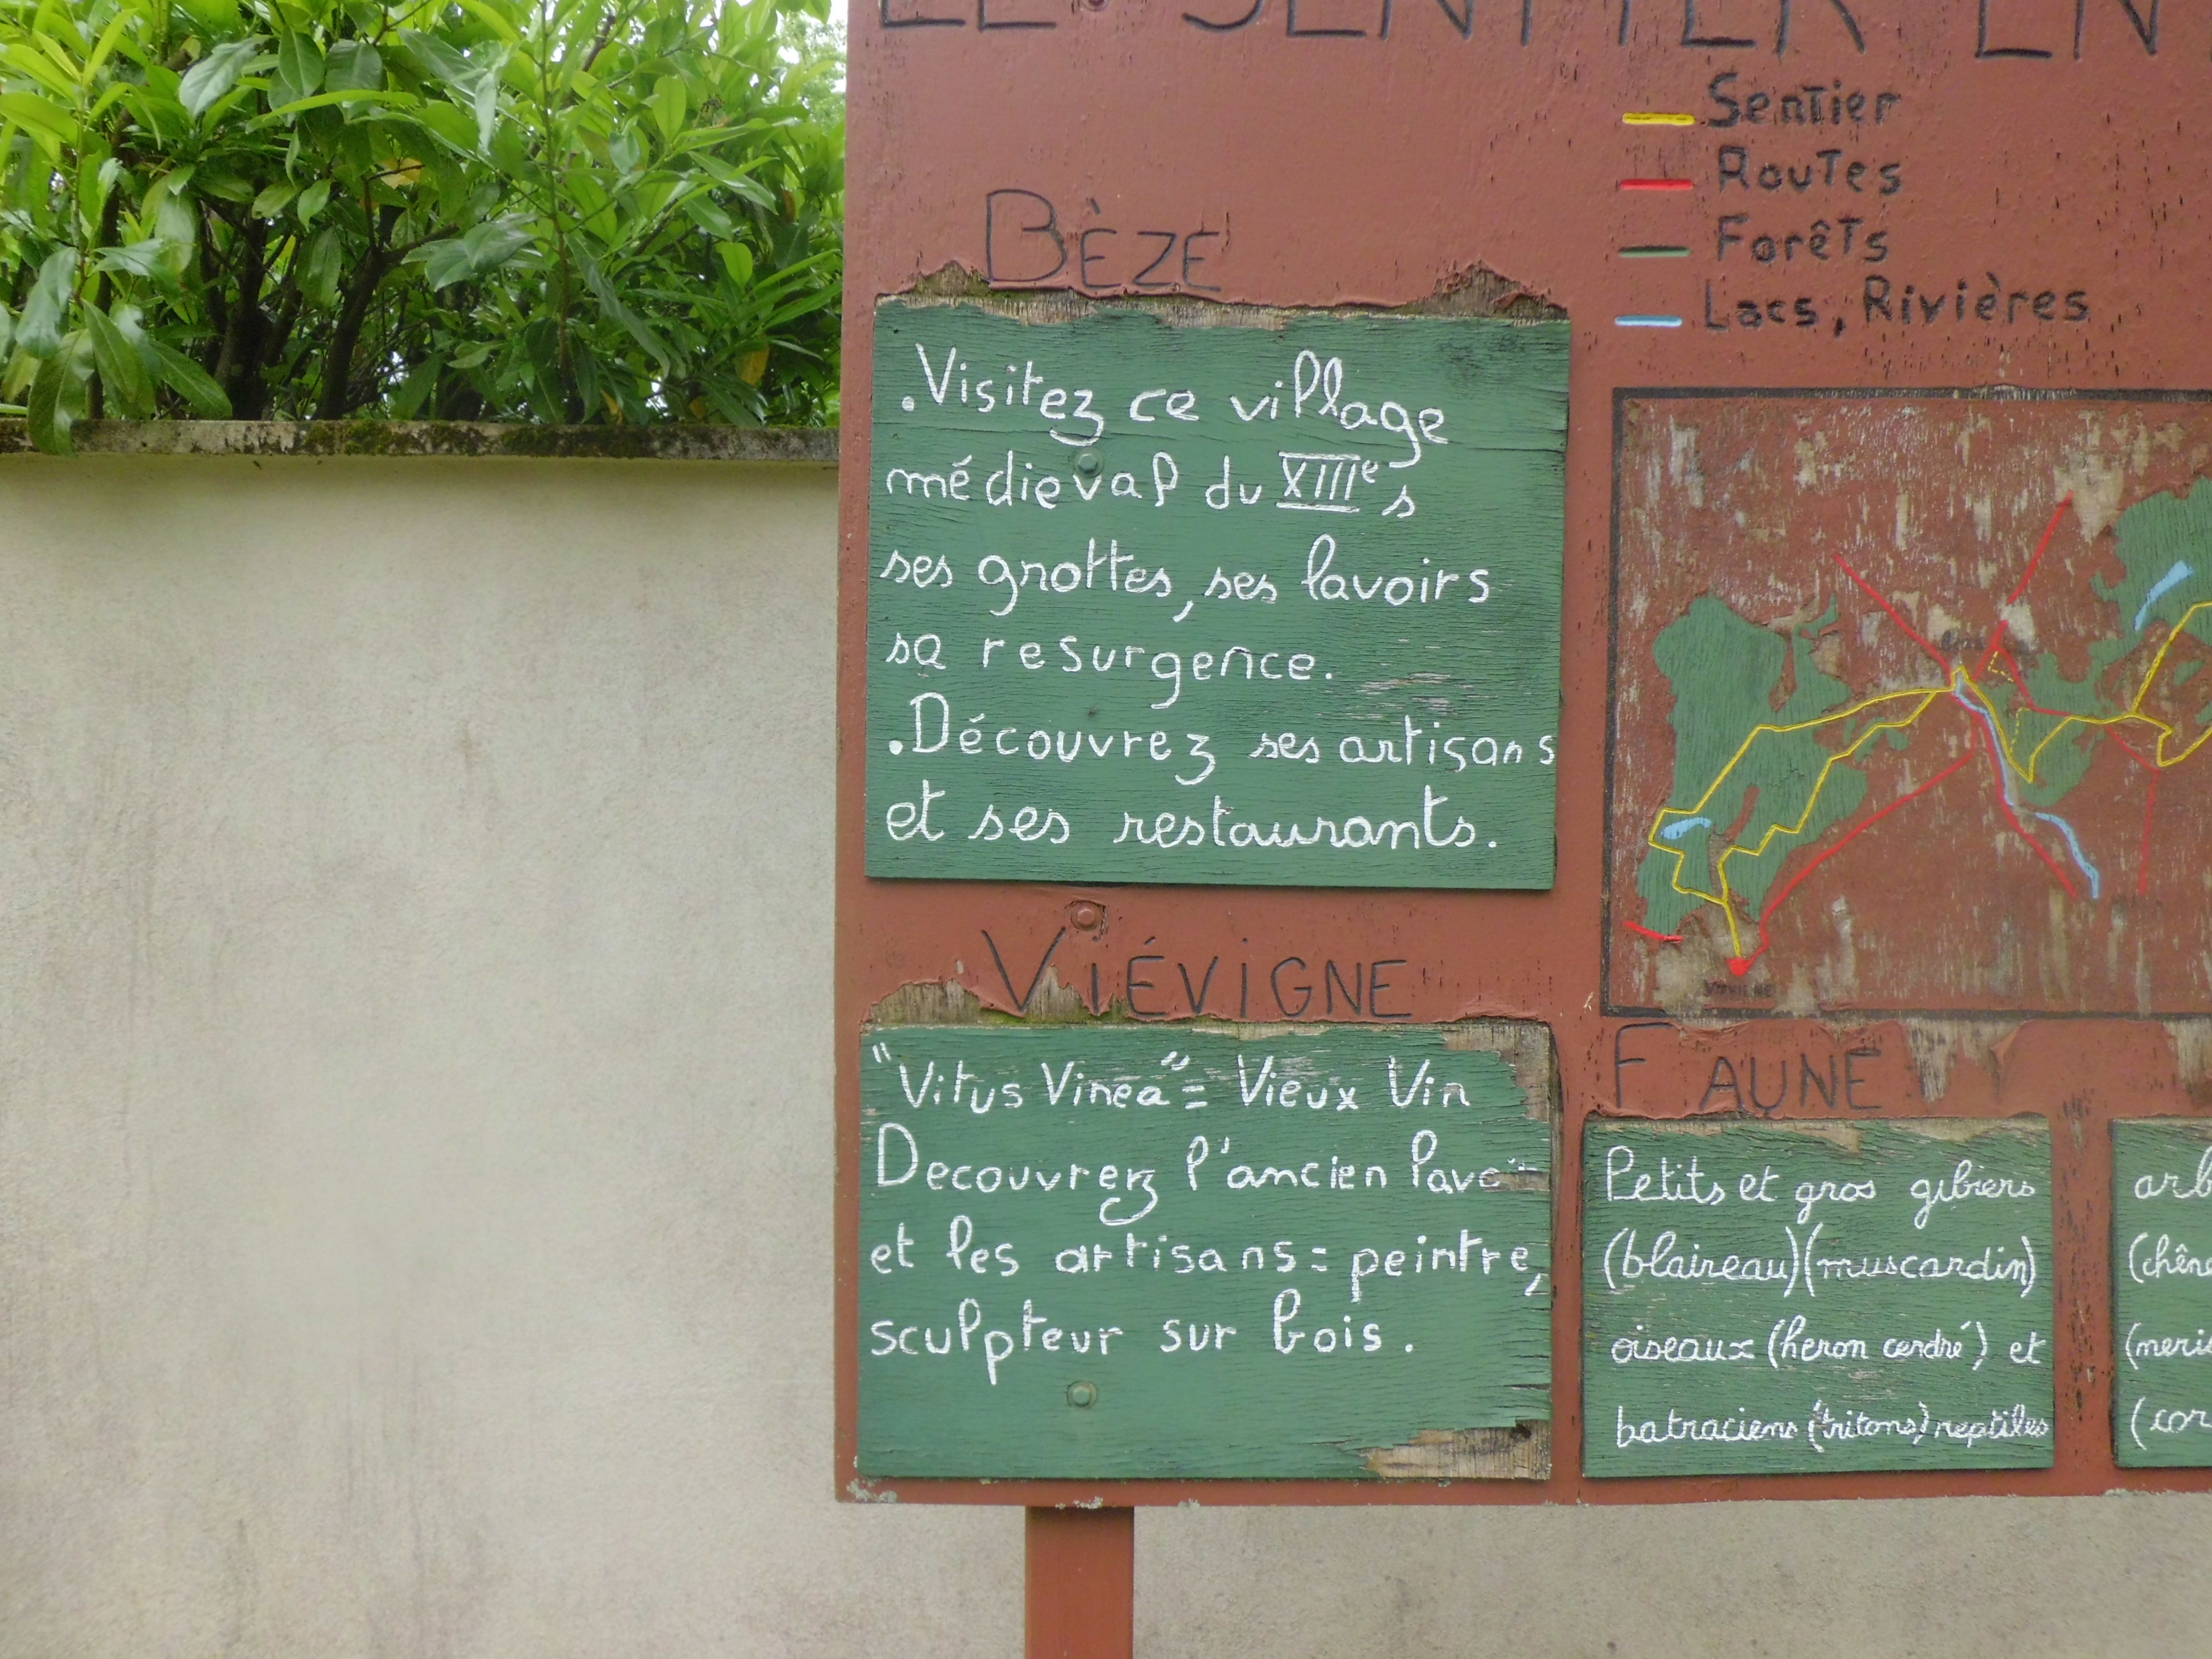 LE SENTIER EN
Sentier
Routes
Forêts
Lacs, Rivières
BÈZE
.Visitez ce village
médieval du XIIIe s
ses grottes, ses lavoirs
sa resurgence.
.Découvrez ses artisans
et ses restaurants.
VIÉVIGNE
"Vitus Vinea" = Vieux Vin
Decouvrez l'ancien
et les artisans: peintre,
sculpteur sur bois.
FAUNE
Petits et gros gibiers
(blaireau)(muscardin)
oiseaux (heron cendré) et
batraciens (tritons) reptiles
arb
(chêne
(meris
(cor